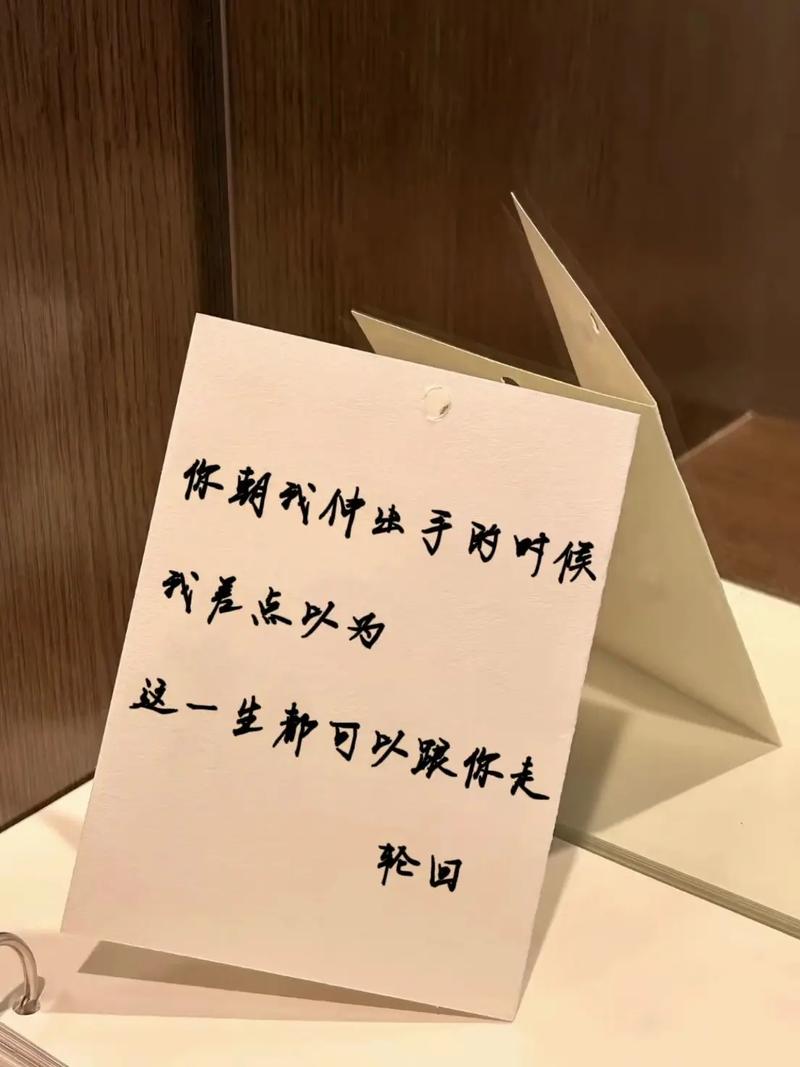 你朝我伸出手的时候
我差点以为
这一生都可以跟你走
轮回